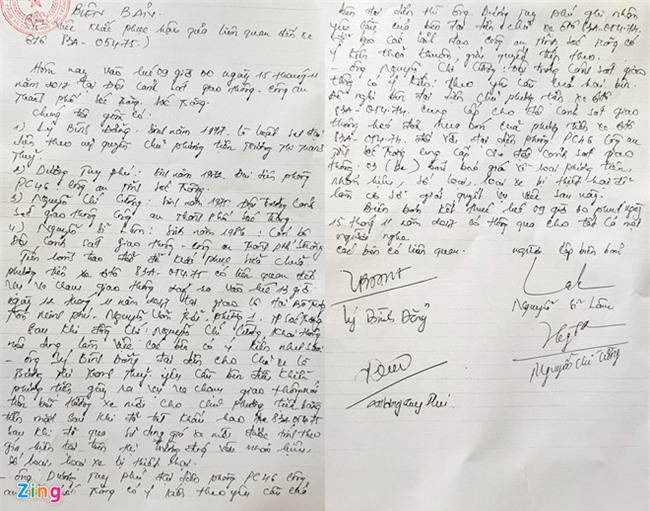 BIÊN BẢN.
(Về việc khắc phục hậu quả liên quan đến xe
ôtô 83A-054.75.)
Hôm nay vào lúc 09 giờ 00 ngày 15 tháng 11
năm 2017 tại Đội Cảnh sát giao thông - công an
Thành phố Sóc Trăng. Sóc Trăng.
Chúng tôi gồm có:
1) Lý Bình Đẳng. Sinh năm 1977. là
dân theo uỷ quyền chủ phương tiện Trương Thị Xane
Thuỷ.
2) Dương Tuy Phú: sinh năm 1972. Đại diện phòng
PC46 Công an tỉnh Sóc Trăng.
3) Nguyễn Chí Cường: sinh năm 1971. Đội trưởng Cảnh
sát giao thông Công an Thành phố Sóc Trăng
4) Nguyễn Sĩ Lâm: sinh năm 1986: Cán bộ
Đội Cảnh sát giao thông - công an Thành phố Sóc Trăng
Tiến hành trao đổi để khắc phục
phương tiện xe ôtô 83A-054.75 có liên quan đến
vụ va chạm giao thông xảy ra vào lúc 13 giờ
ngày 12 tháng 11 năm 2017 tại giao lộ
Trần Minh Phú - Nguyễn Văn phường 2. TP Sóc Trăng
Sau khi đồng chí Nguyễn Chí Cường khai thông
nội dung làm việc các bên có ý kiến như sau:
- ông Lý Bình Đẳng đại diện cho chủ xe là
Trương Thị Xane Thuỷ: yêu cầu bên điều khiển
phương tiện gây ra vụ va chạm giao thông
tiền bồi thường xe mới cho chủ phương tiện bằng
tiền mặt sau khi đã trừ khấu hao xe 83A-054.75
sau khi đã qua sử dụng giá xe mới được tính theo
giá hiện tại trên thị trường đúng với nhãn hiệu,
số loại, loại xe bị thiệt hại.
- ông Dương Tuy Phú đại diện phòng PC46 công
an Sóc Trăng có ý kiến theo yêu cầu chủ
bên đại diện thì ông Dương Tuy Phú ghi nhận
yêu cầu của bên đại diện chủ xe 83A-054.75.
báo cáo lãnh đạo công an tỉnh Sóc Trăng có
ý kiến thỏa thuận, giải quyết tiếp theo.
- ông Nguyễn Chí Cường: Đội trưởng Cảnh sát giao
thông có ý kiến. Theo yêu cầu của hai bên.
Đề nghị bên đại diện chủ phương tiện xe ôtô
83A-054.75. cung cấp cho đội Cảnh sát giao
thông hoá đơn mua bán của phương tiện xe ôtô
83A-054.75. đối với đại diện phòng PC46 Công an
tỉnh Sóc Trăng cung cấp cho đội Cảnh sát giao
thông 03 (ba) bảng báo giá về loại phương tiện,
nhãn hiệu, số loại, loại xe bị thiệt hại để
làm cơ sở giải quyết vụ việc sau này.
Biên bản kết thúc lúc 09 giờ 40 phút ngày
15 tháng 11 năm 2017 có thông qua cho tất cả mọi
người nghe.
các bên có liên quan. người lập biên bản
Lý Bình Đẳng
Nguyễn Sĩ Lâm
Nguyễn Chí Cường
Dương Tuy Phú.
Zing